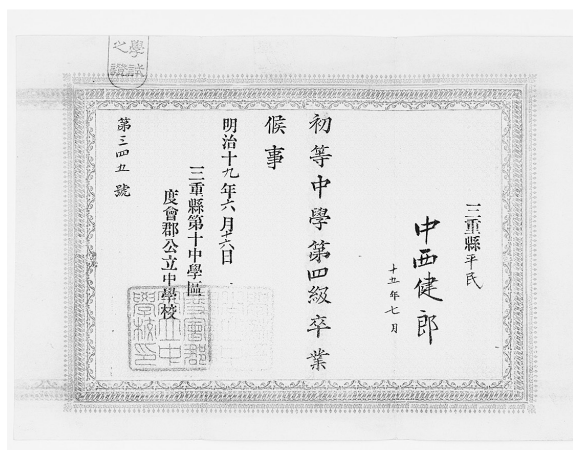 三重縣平民
中西健郎
十五年七月
初等中學第四級卒業
候事
明治十九年六月十六日
三重縣第十中學區
度會郡公立中學校
第三四五號
度會郡
公立中
學校印
學試
之證